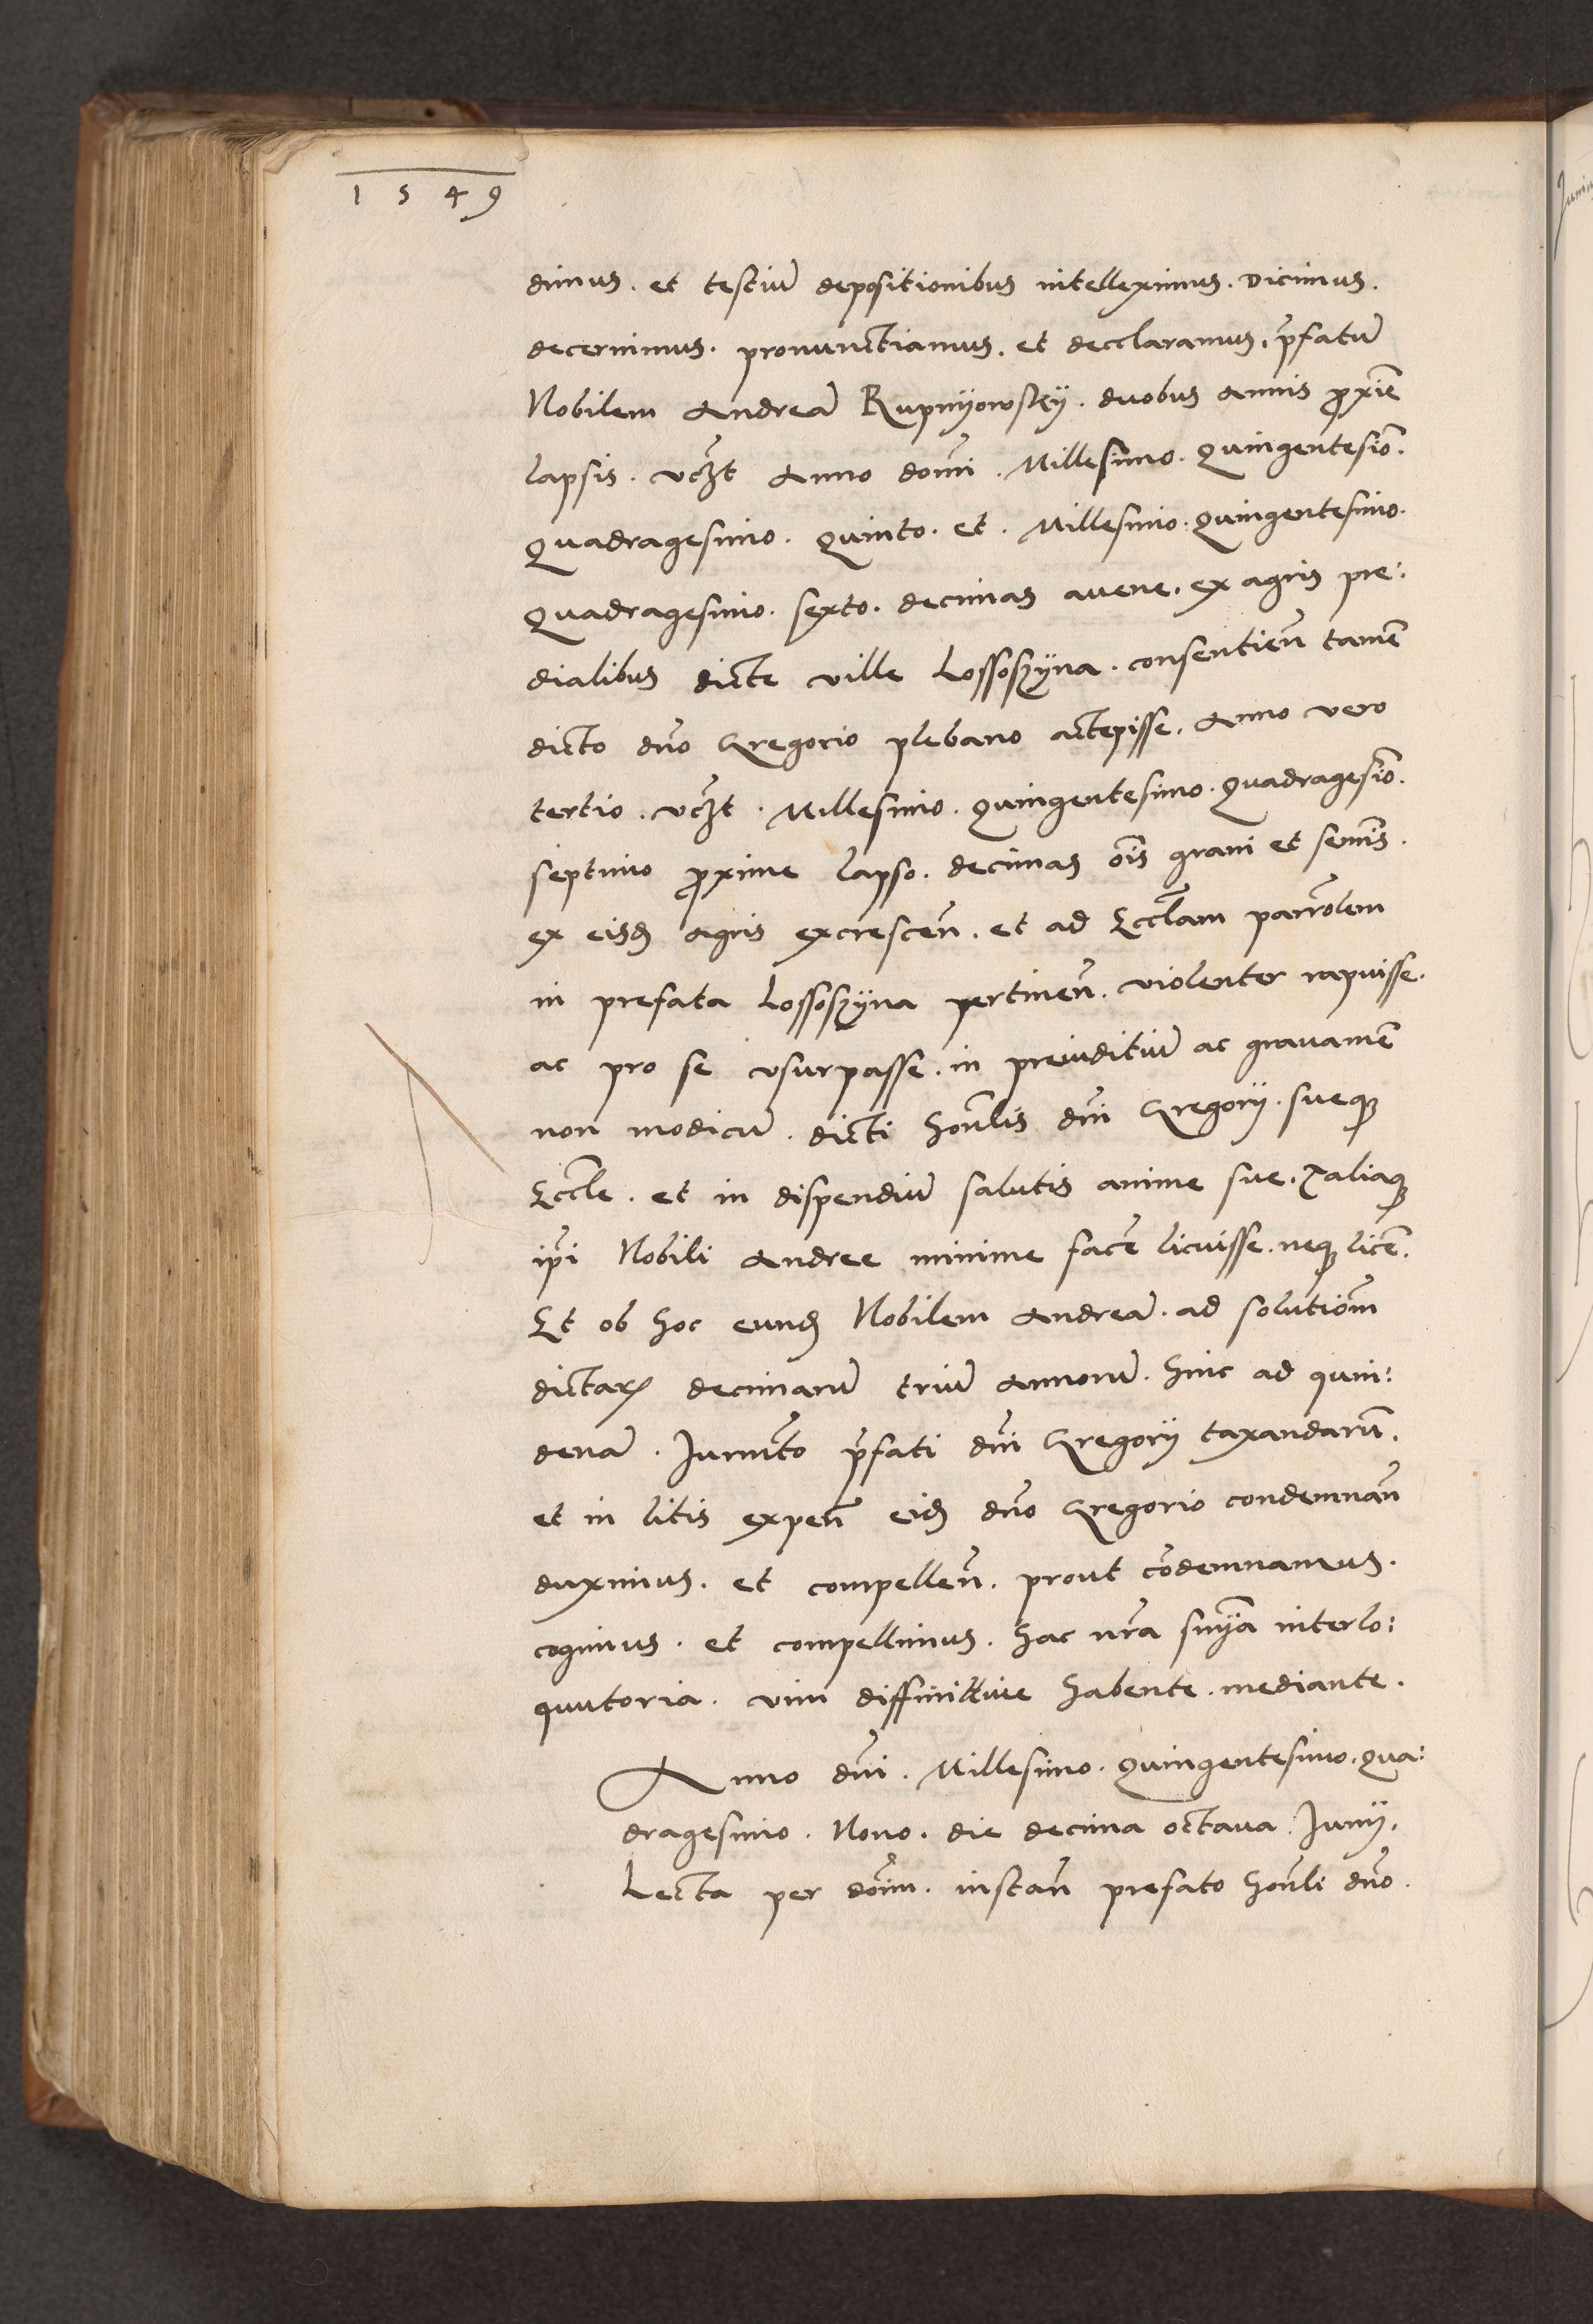 1549
dimus. et testiū depositionibus intelleximus. Dicimus.
decernimus. pronunctiamus. et decclaramus. p̄fatū
Nobilem Andreā Rupnÿowskÿ. duobus Annis ꝓxīe
lapsis. vcꝫt Anno domī. Millesimo. Quingentesiō.
Quadragesimo. Quinto. et. Millesimo. Quingentesimo.
Quadragesimo. sexto. decimas auene. ex agris pre:
dialibus dicte ville Lossoszÿna. consentieñ tamē
dicto dño Gregorio plebano accepisse. Anno vero
tertio. vcꝫt. Millesimo. Quingentesimo. Quadragesiō.
septimo ꝓxime lapso. decimas oīs grani et semīs.
ex eisd agris excresceñ. et ad Eccl̄am parrōlem
in prefata Lossoszÿna pertineñ. violenter rapuisse.
ac pro se vsurpasse. in preiuditiū ac grauamē
non modicū. dicti hoñlis dñi Gregorÿ. sueqꝫ
Eccl̄e. et in dispendiū salutis anime sue. Taliaqꝫ
ip̄i Nobili Andree minime facē licuisse. neqꝫ licē.
Et ob hoc eund Nobilem Andreā. ad solutiōm
dictaꝝ decimarū triū Annorū. hinc ad quin:
denā. Iuramto p̄fati dñi Gregorÿ taxandarū.
et in litis expeñ eid dño Gregorio condemnañ
duximus. et compelleñ. prout cōdemnamus.
cogimus. et compellimus. hac nr̄a snīa interlo:
quutoria. vim diffinitiue habente. mediante.
Anno dñi. Millesimo. Quingentesimo. Qua:
dragesimo. Nono. die decima octaua. Iunÿ.
Lecta per dōim. instañ prefato hoñli dño.